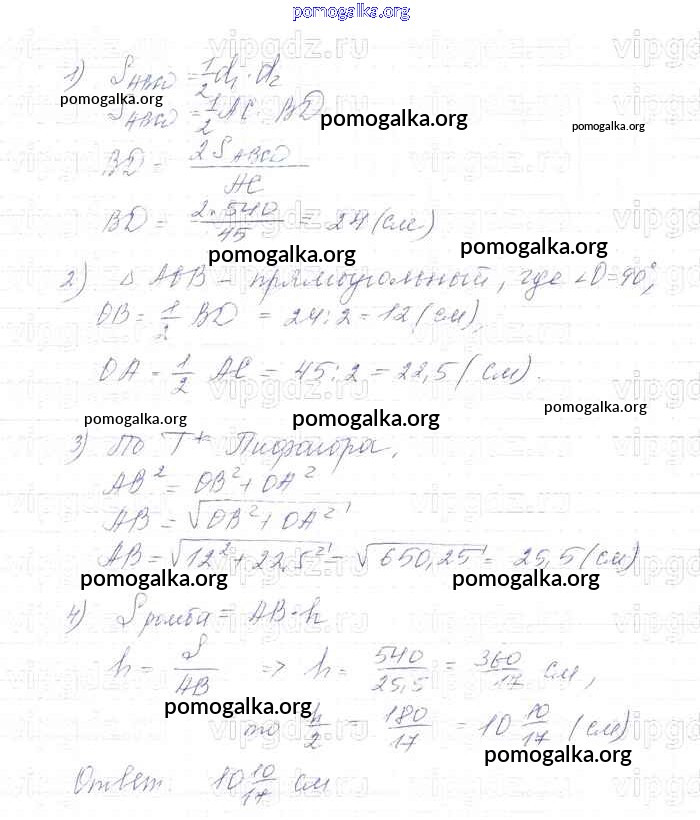 pomogalka.org
1) S_ABCD = 1/2 d₁ · d₂
pomogalka.org
S_ABCD = 1/2 AC · BD
pomogalka.org
pomogalka.org
BD = 2S_ABCD / AC
BD = 2·540 / 45 = 24 (см)
pomogalka.org
pomogalka.org
2) Δ AOB – прямоугольный, где ∠O=90°,
OB = 1/2 BD = 24:2 = 12 (см),
OA = 1/2 AC = 45:2 = 22,5 (см).
pomogalka.org
pomogalka.org
pomogalka.org
3) По Пифагора,
AB² = OB² + OA²
AB = √(OB² + OA²)
AB = √(12² + 22,5²) = √650,25 = 25,5 (см)
pomogalka.org
pomogalka.org
4) S ромба = AB·h
h = S / AB => h = 540 / 25,5 = 360 / 17 см,
pomogalka.org
то h/2 = 180/17 = 10 10/17 (см)
pomogalka.org
Ответ: 10 10/17 см